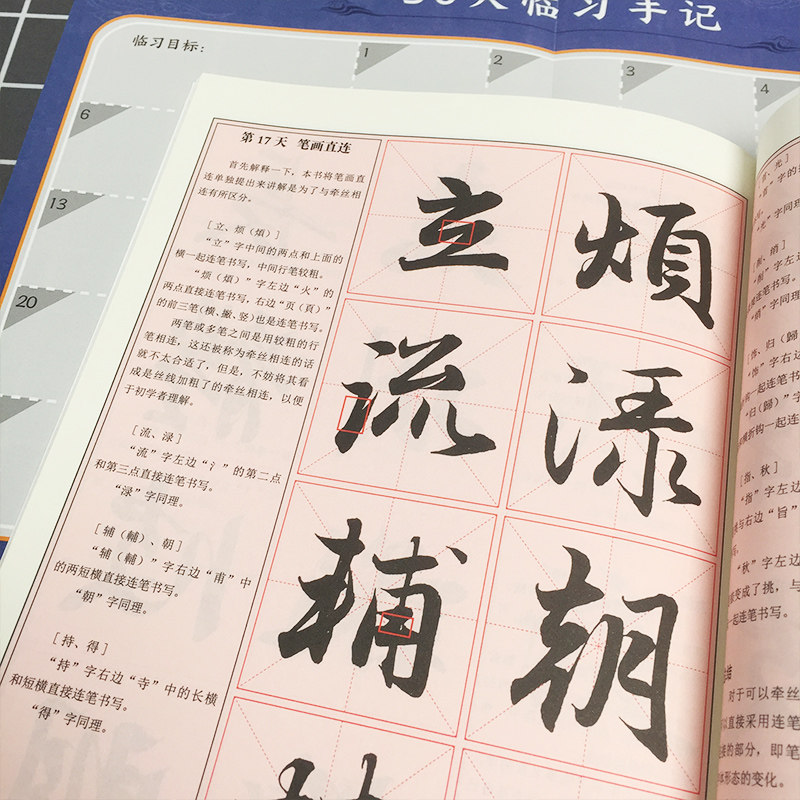 天临习手记
临习目标：
1
2
3
4
6
13
20
第17天 笔画直连
首先解释一下，本书将笔画直
连单独提出来讲解是为了与牵丝相
连有所区分。
［立、烦（煩）］
“立”字中间的两点和上面的
横一起连笔书写，中间行笔较粗。
“烦（煩）”字左边“火”的
两点直接连笔书写，右边“页（頁）”
的前三笔（横、撇、竖）也是连笔书写。
两笔或多笔之间是用较粗的行
笔相连，这还被称为牵丝相连的话
就不太合适了，但是，不妨将其看
成是丝线加粗了的牵丝相连，以便
于初学者理解。
［流、渌］
“流”字左边“氵”的第二点
和第三点直接连笔书写。
“渌”字同理。
［辅（輔）、朝］
“辅（輔）”字右边“甫”中
的两短横直接连笔书写。
“朝”字同理。
［持、得］
“持”字右边“寺”中的长横
和短横直接连笔书写。
“得”字同理。
立 煩
流 渌
輔 朝
、光］
”字的
光”字同理
字左
字同理
、归（歸
”字右
一起连笔书
“归（歸）”字
折钩一起连
［指、秋］
“指”字左边
与右边“旨”
“秋”字左边
变成了挑，与
一起连笔书写。
结
对于可以牵丝
以直接采用连笔
接的部分，即笔
体形态的变化。